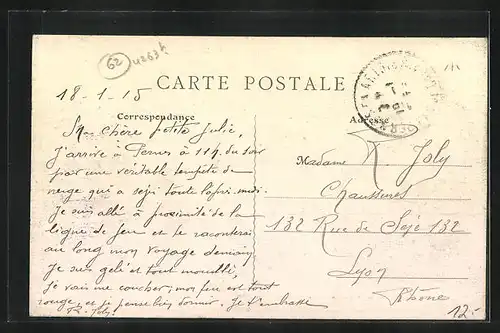 62
42634
CARTE POSTALE
18-1-15
Correspondance
Adresse
Ma chère petite Julie,
J'arrive à Pernes à 11h. du soir
par une véritable tempête de
neige qui a sévi toute l'après-midi.
Je suis allé à proximité de la
ligne de feu et te raconterai
au long mon voyage demain
Je suis gelé et tout mouillé,
je vais me coucher, mon feu est tout
rouge, et je pense bien dormir. Je t'embrasse
R. Joly.
Madame R. Joly
Chaussures
132 Rue de Sèze 132
Lyon
Rhône
12.-